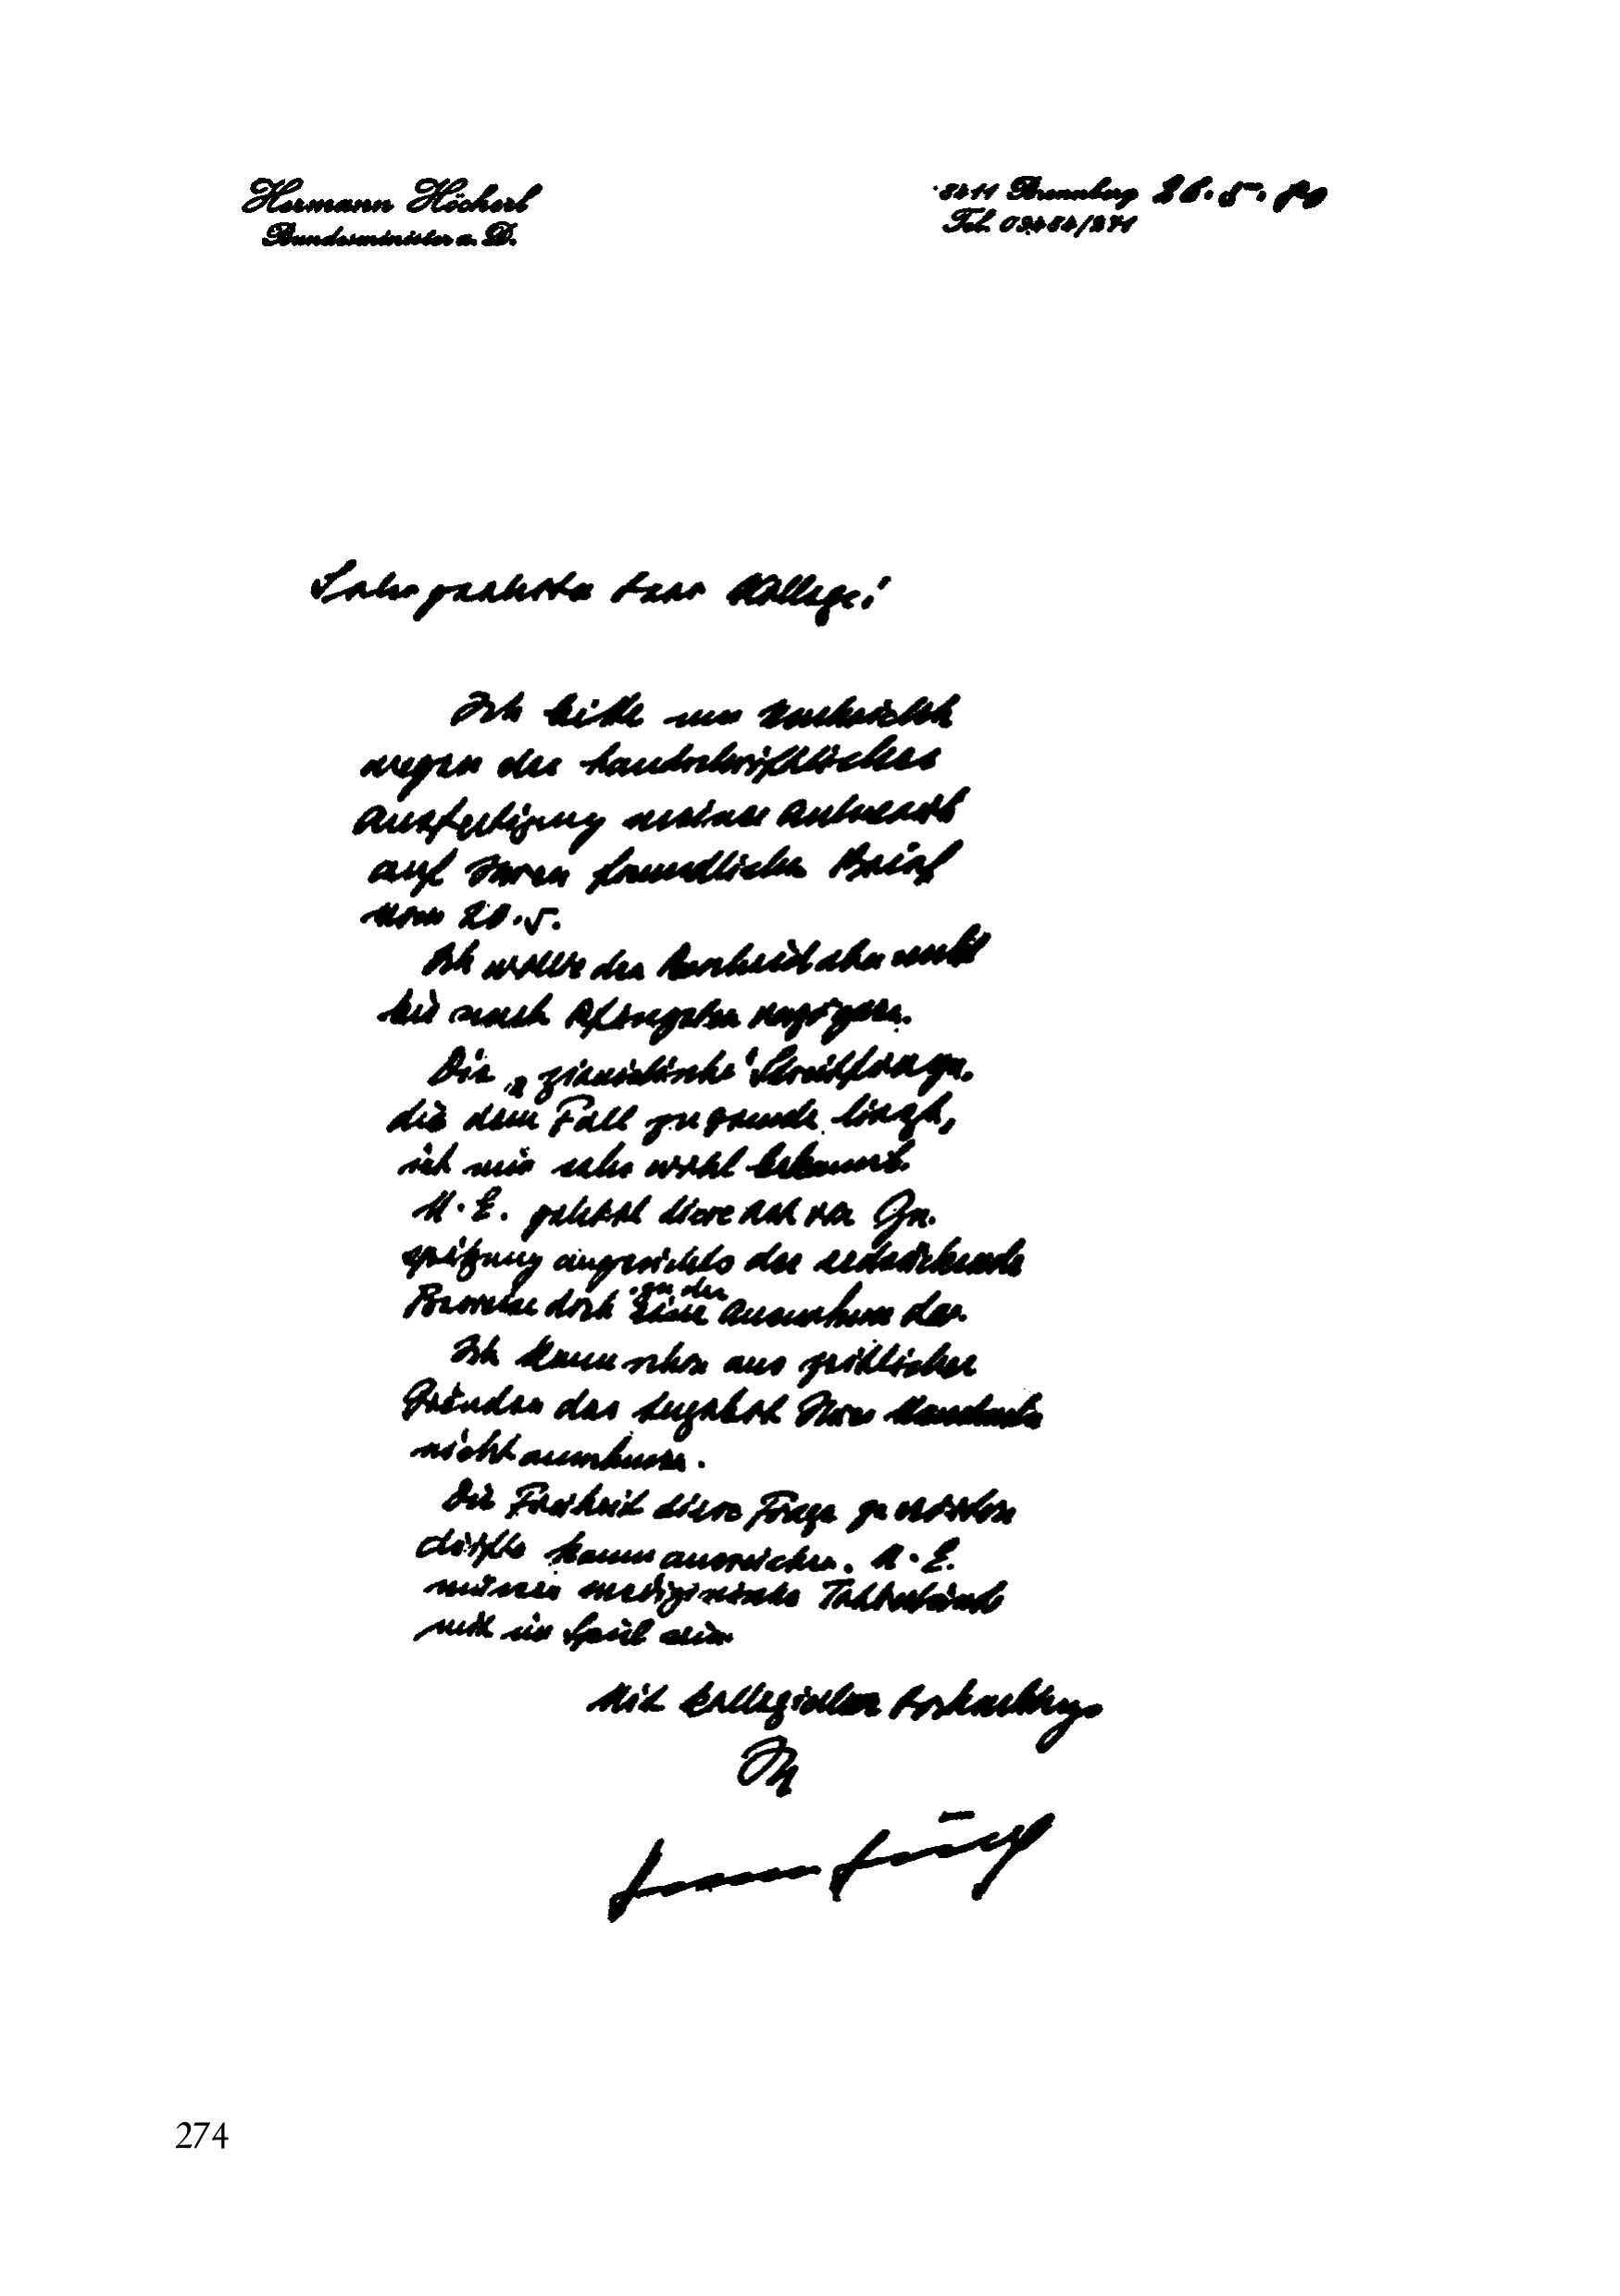 Hermann Höcherl
Bundesminister a. D.
8411 Brennberg 26. 5. 89
Tel. 09484/271
Sehr geehrter Herr Kollege!
Ich bitte um Nachsicht
wegen der handschriftlichen
Ausfertigung meiner Antwort
auf Ihren freundlichen Brief
vom 20.5.
Ich wollte den Bescheid aber nicht
bis nach verzögern.
Die „zionistische" Streitfrage,
die dem Fall zugrunde liegt,
ist mir sehr wohl bekannt.
M. E. gehört diese
angesichts der
Beweise doch zu der Ausnahme der.
Ich kann schon aus zeitlichen
Gründen das Angebot Ihres Mandats
nicht annehmen.
Die Freiheit diese Frage zu erörtern
dürfte kaum ausreichen. M. E.
müssen medizinische Tatbestände
mit im Spiel sein
Mit kollegialer Hochachtung
Ihr
274